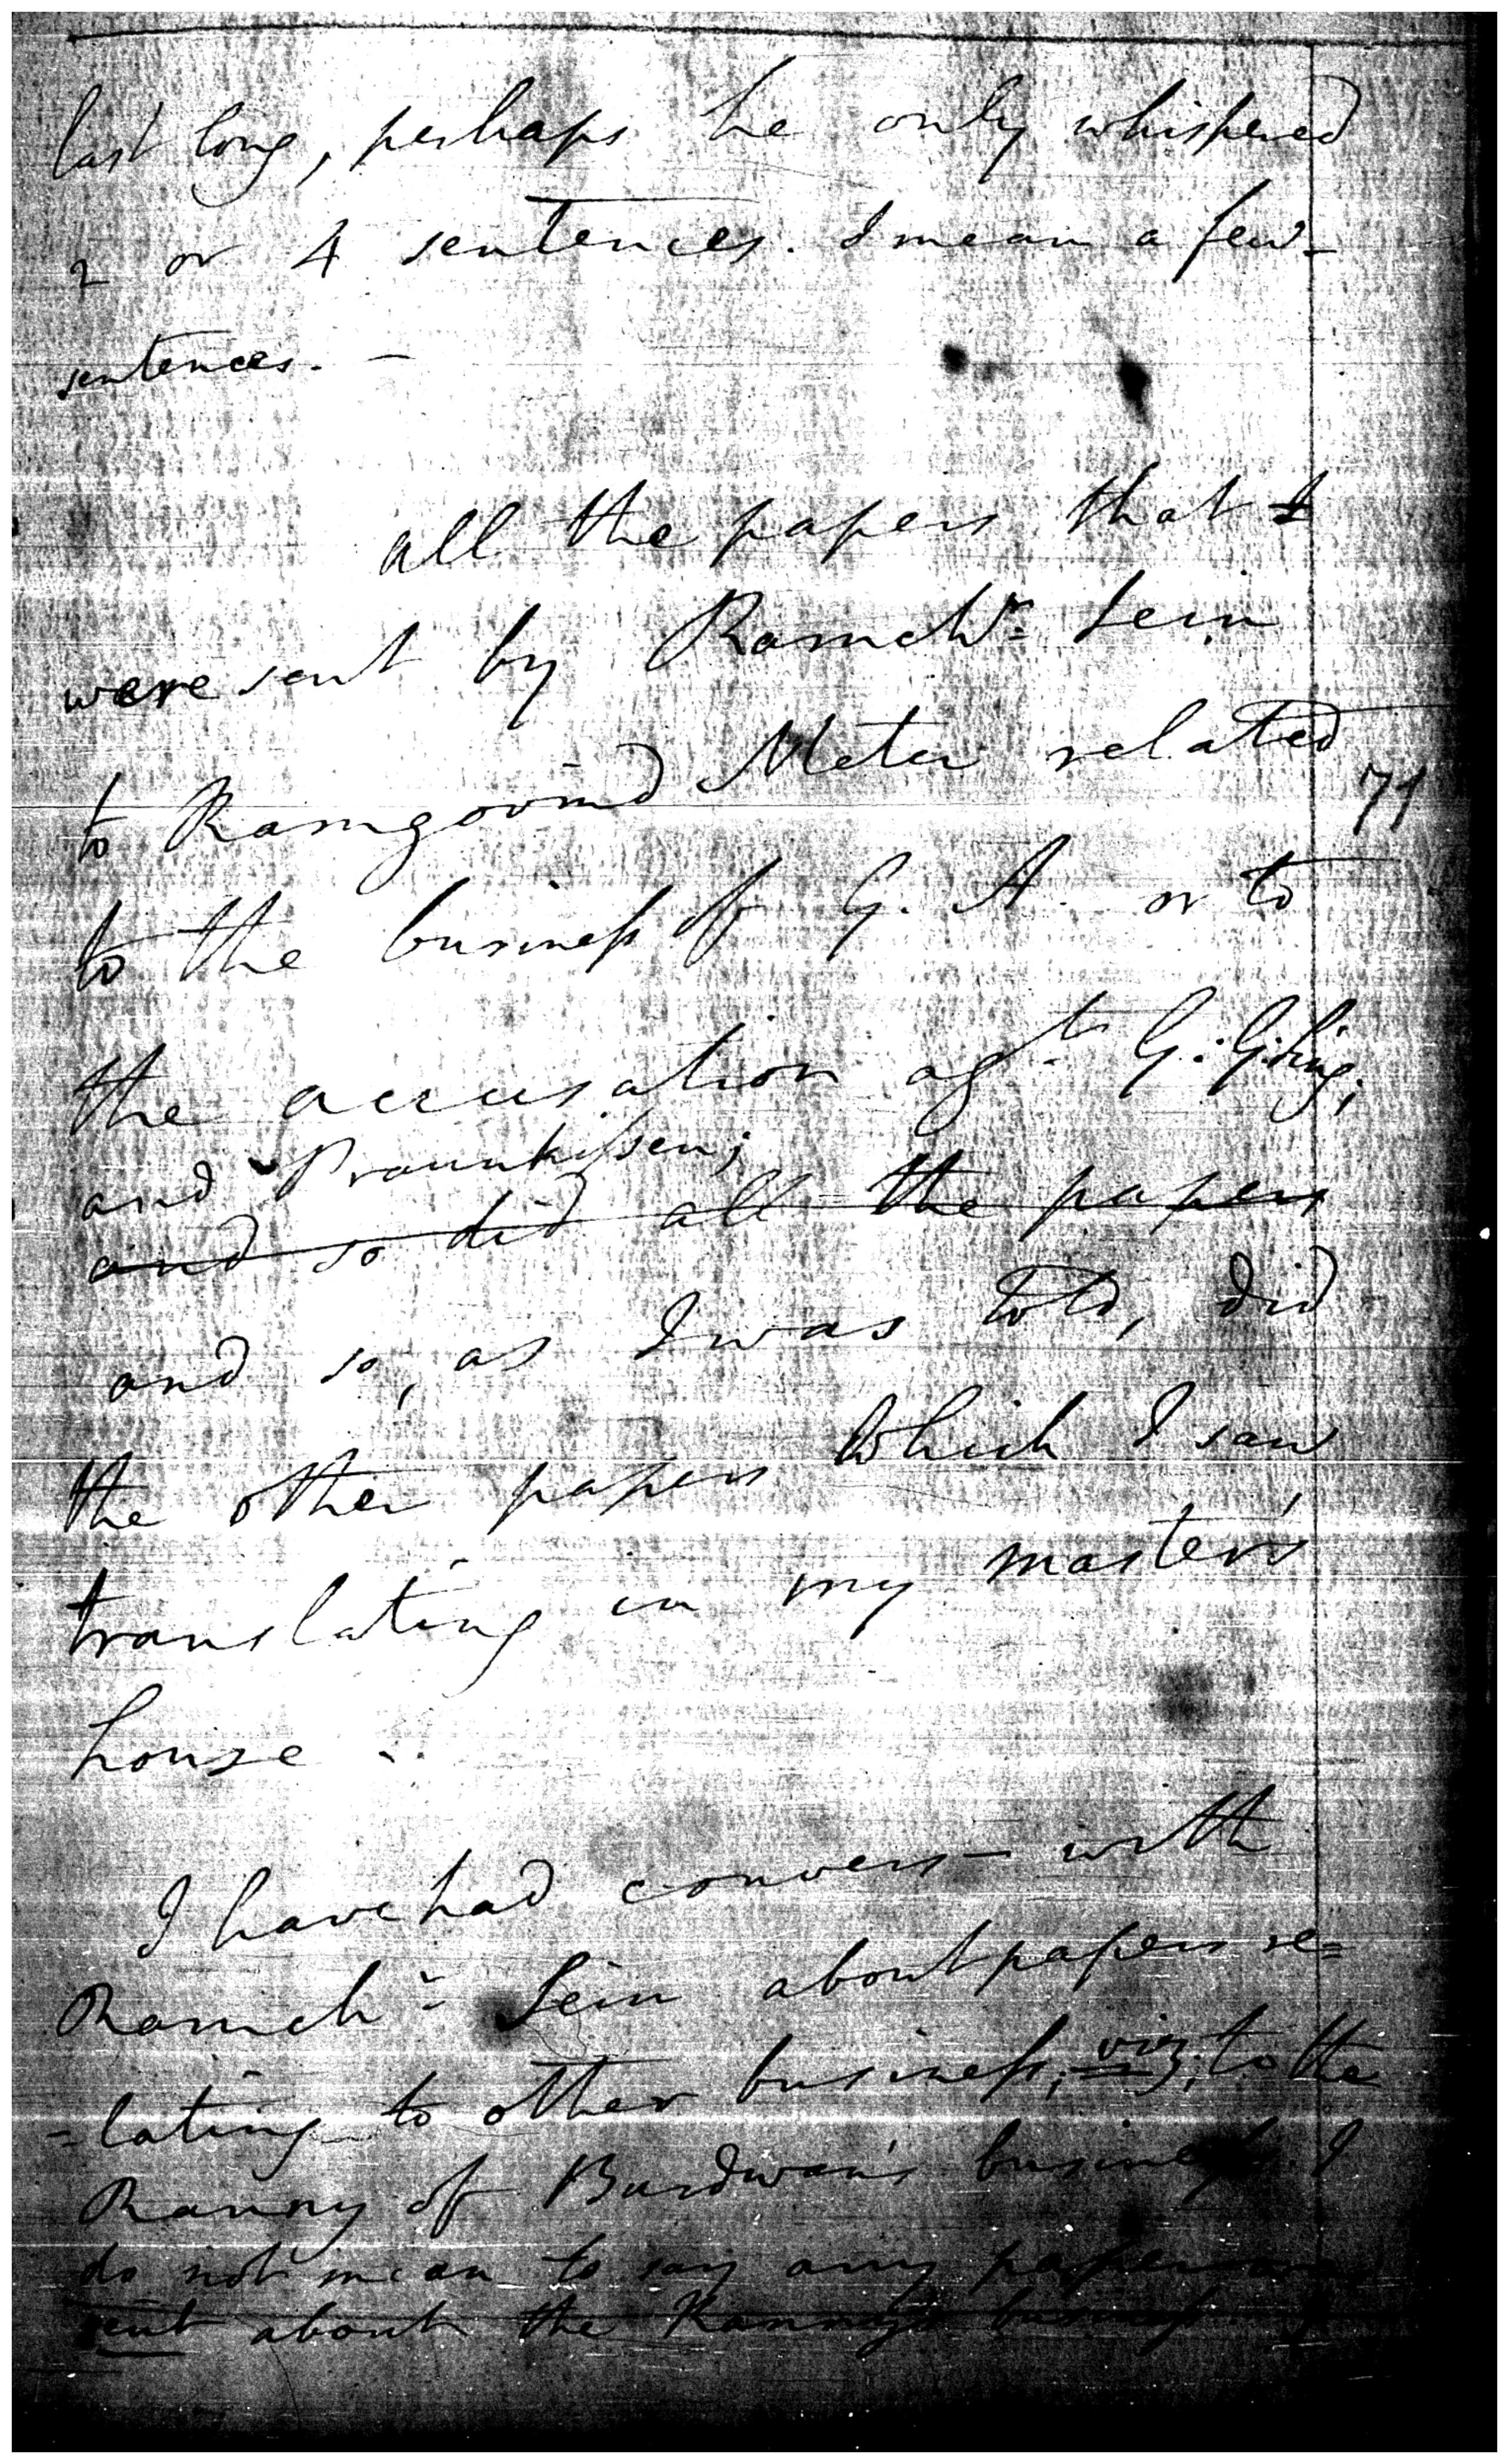 last long, perhaps he only whispered
2 or 4 sentences. I mean a few
sentences. —
all the papers that I
were sent by Ramchr. Sein
to Ramgovind Meter related
71
to the business of G. A. or to
the accusation agt. G: G: Sing;
and Praunkissen;
and so did all the papers
and so, as I was told, did
the other papers which I saw
translating in my master's
house.
I have had convers— with
Ramchr. Sein about papers re=
=lating to other business; viz; to the
Ranny of Burdwan's business. I
do not mean to say any papers
sent about the Ranny's business.